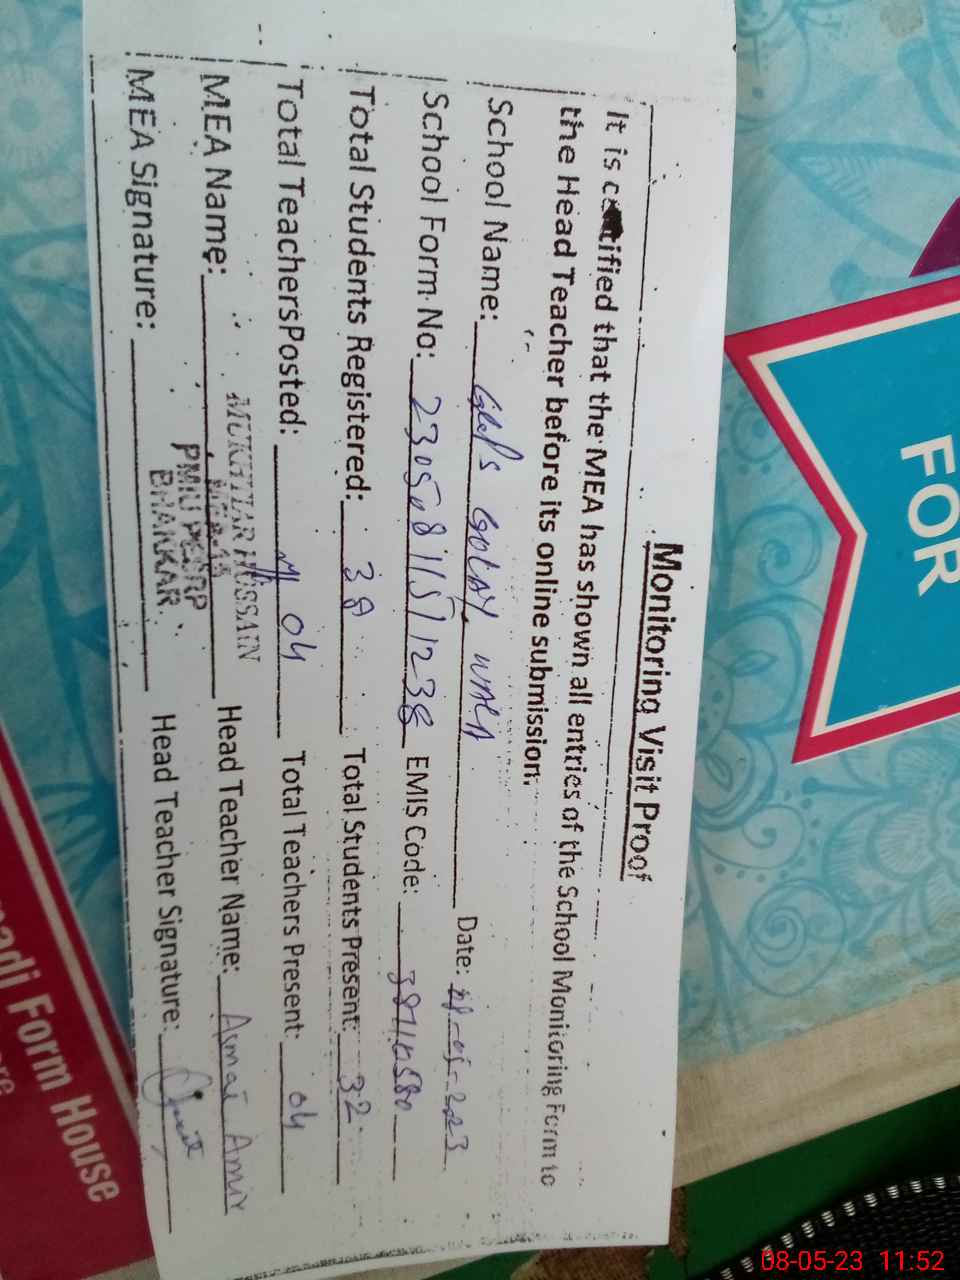 Monitoring Visit Proof
It is certified that the MEA has shown all entries of the School Monitoring Form to
the Head Teacher before its online submission.
School Name: GGPS GOLAY WALA Date: -05-2023
School Form No: EMIS Code:
Total Students Registered: 38 Total Students Present: 32
Total TeachersPosted: 04 Total Teachers Present: 04
MEA Name: MUKHTIAR HUSSAIN Head Teacher Name: Asmat Amir
PMIU PESRP
BHAKKAR.
MEA Signature: Head Teacher Signature:
FOR
adi Form House
ore
08-05-23 11:52